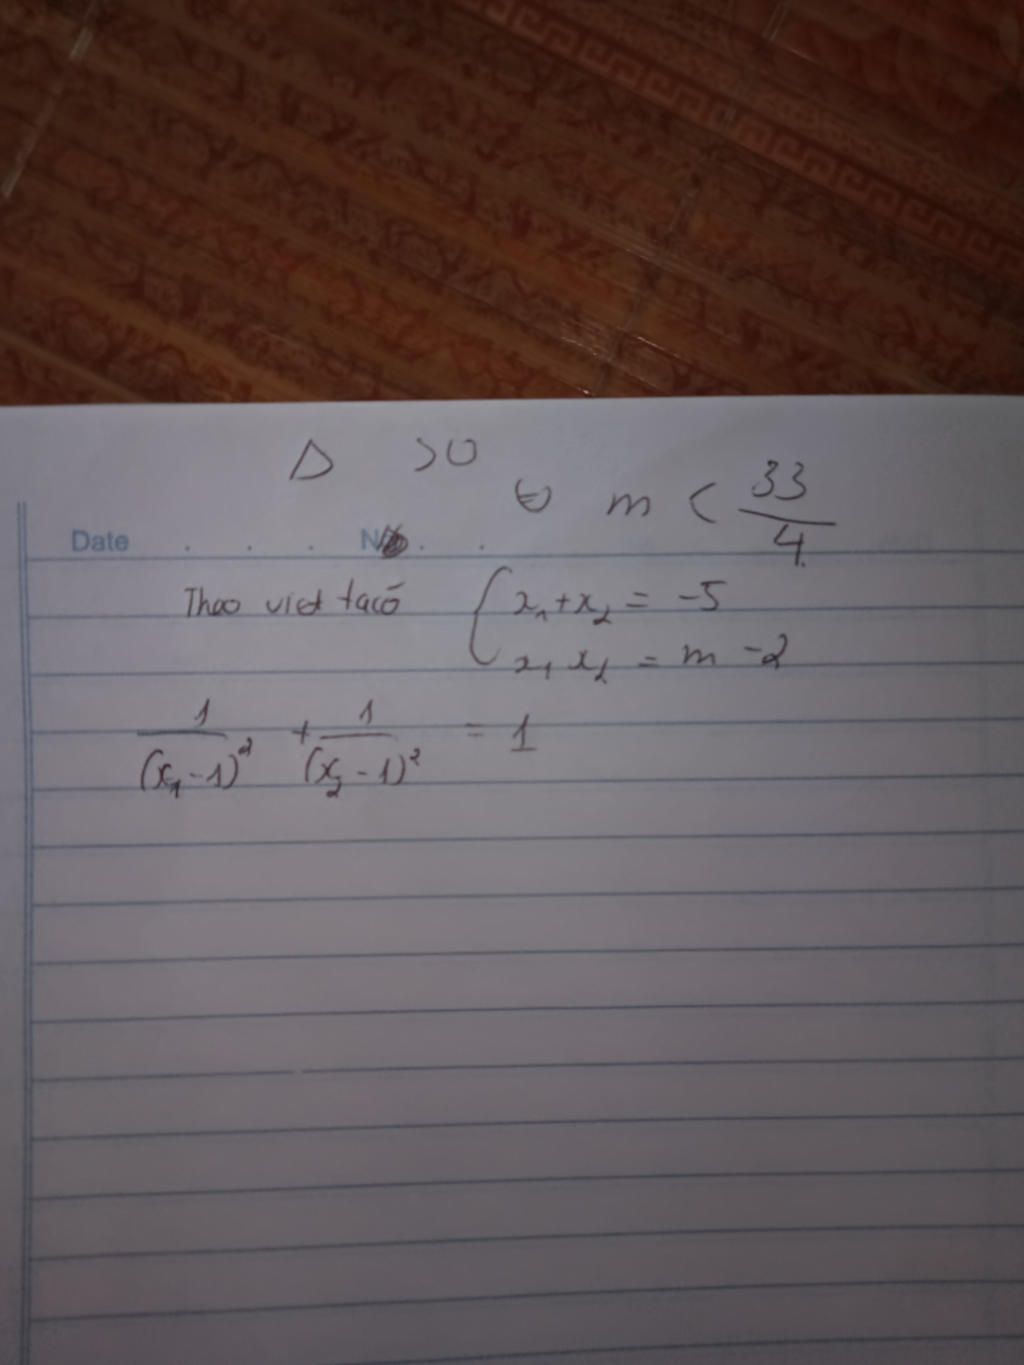 Δ >0
⇔ m < 33/4
Date . . . No . .
Theo viet ta có { x₁+x₂ = -5
x₁ x₂ = m -2
1/(x₁-1)² + 1/(x₂-1)² = 1